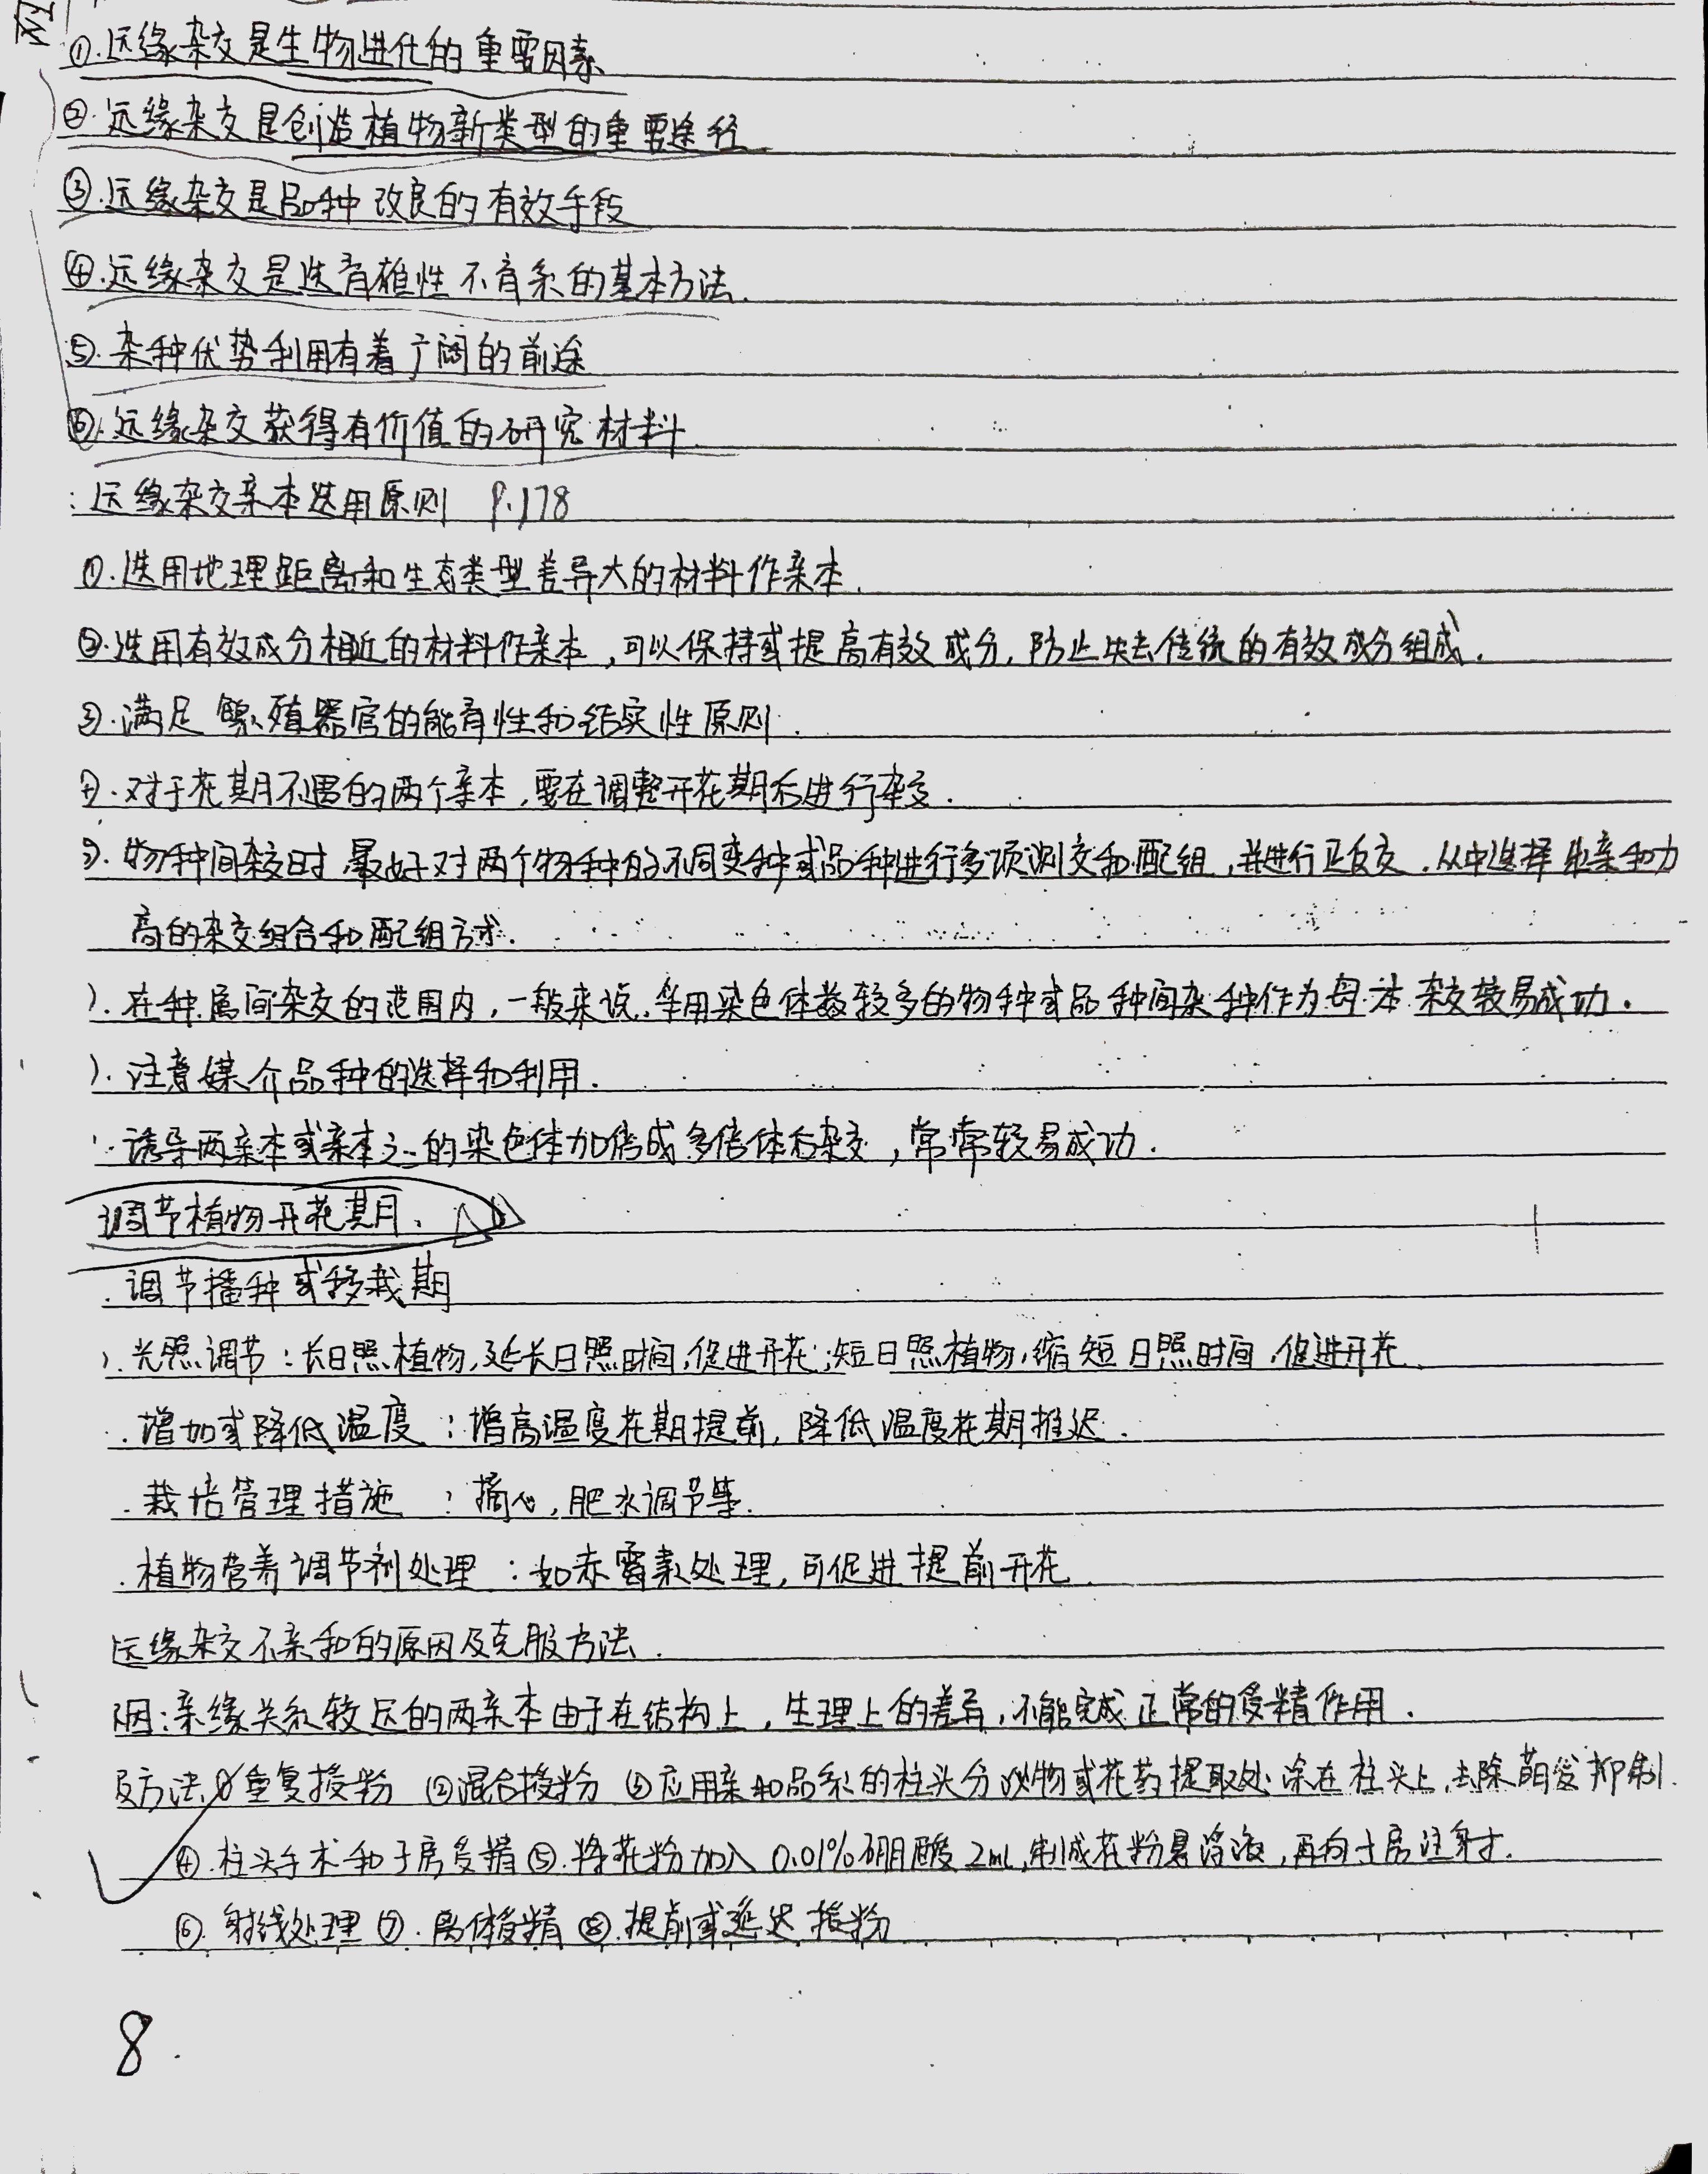 ①.远缘杂交是生物进化的重要因素
②.远缘杂交是创造植物新类型的重要途径
③.远缘杂交是品种改良的有效手段
④.远缘杂交是选育雄性不育系的基本方法.
⑤.杂种优势利用有着广阔的前途
⑥.远缘杂交获得有价值的研究材料
:远缘杂交亲本选用原则 P.178
①.选用地理距离和生态类型差异大的材料作亲本.
②.选用有效成分相近的材料作亲本,可以保持或提高有效成分,防止失去传统的有效成分组成.
③.满足繁殖器官的能育性和结实性原则.
④.对于花期不遇的两个亲本,要在调整开花期后进行杂交.
⑤.物种间杂交时,最好对两个物种的不同变种或品种进行多项测交和配组,并进行正反交.从中选择出亲和力
高的杂交组合和配组方式.
).在种.属间杂交的范围内,一般来说,采用染色体数较多的物种或品种间杂种作为母本杂交较易成功.
).注意媒介品种的选择和利用.
.诱导两亲本或亲本之一的染色体加倍成多倍体后杂交,常常较易成功.
调节植物开花期.
.调节播种或移栽期
).光照调节:长日照植物,延长日照时间,促进开花;短日照植物,缩短日照时间,促进开花.
.增加或降低温度:增高温度花期提前,降低温度花期推迟.
.栽培管理措施:摘心,肥水调节等.
.植物营养调节剂处理:如赤霉素处理,可促进提前开花.
远缘杂交不亲和的原因及克服方法.
因:亲缘关系较远的两亲本由于在结构上,生理上的差异,不能完成正常的受精作用.
及方法:①重复授粉 ②混合授粉 ③应用亲和品系的柱头分泌物或花药提取处涂在柱头上,去除萌发抑制.
④.柱头手术和子房受精⑤.将花粉加入0.01%硼酸2mL,制成花粉悬浮液,再向子房注射.
⑥.射线处理⑦.离体受精⑧.提前或延迟授粉
8.